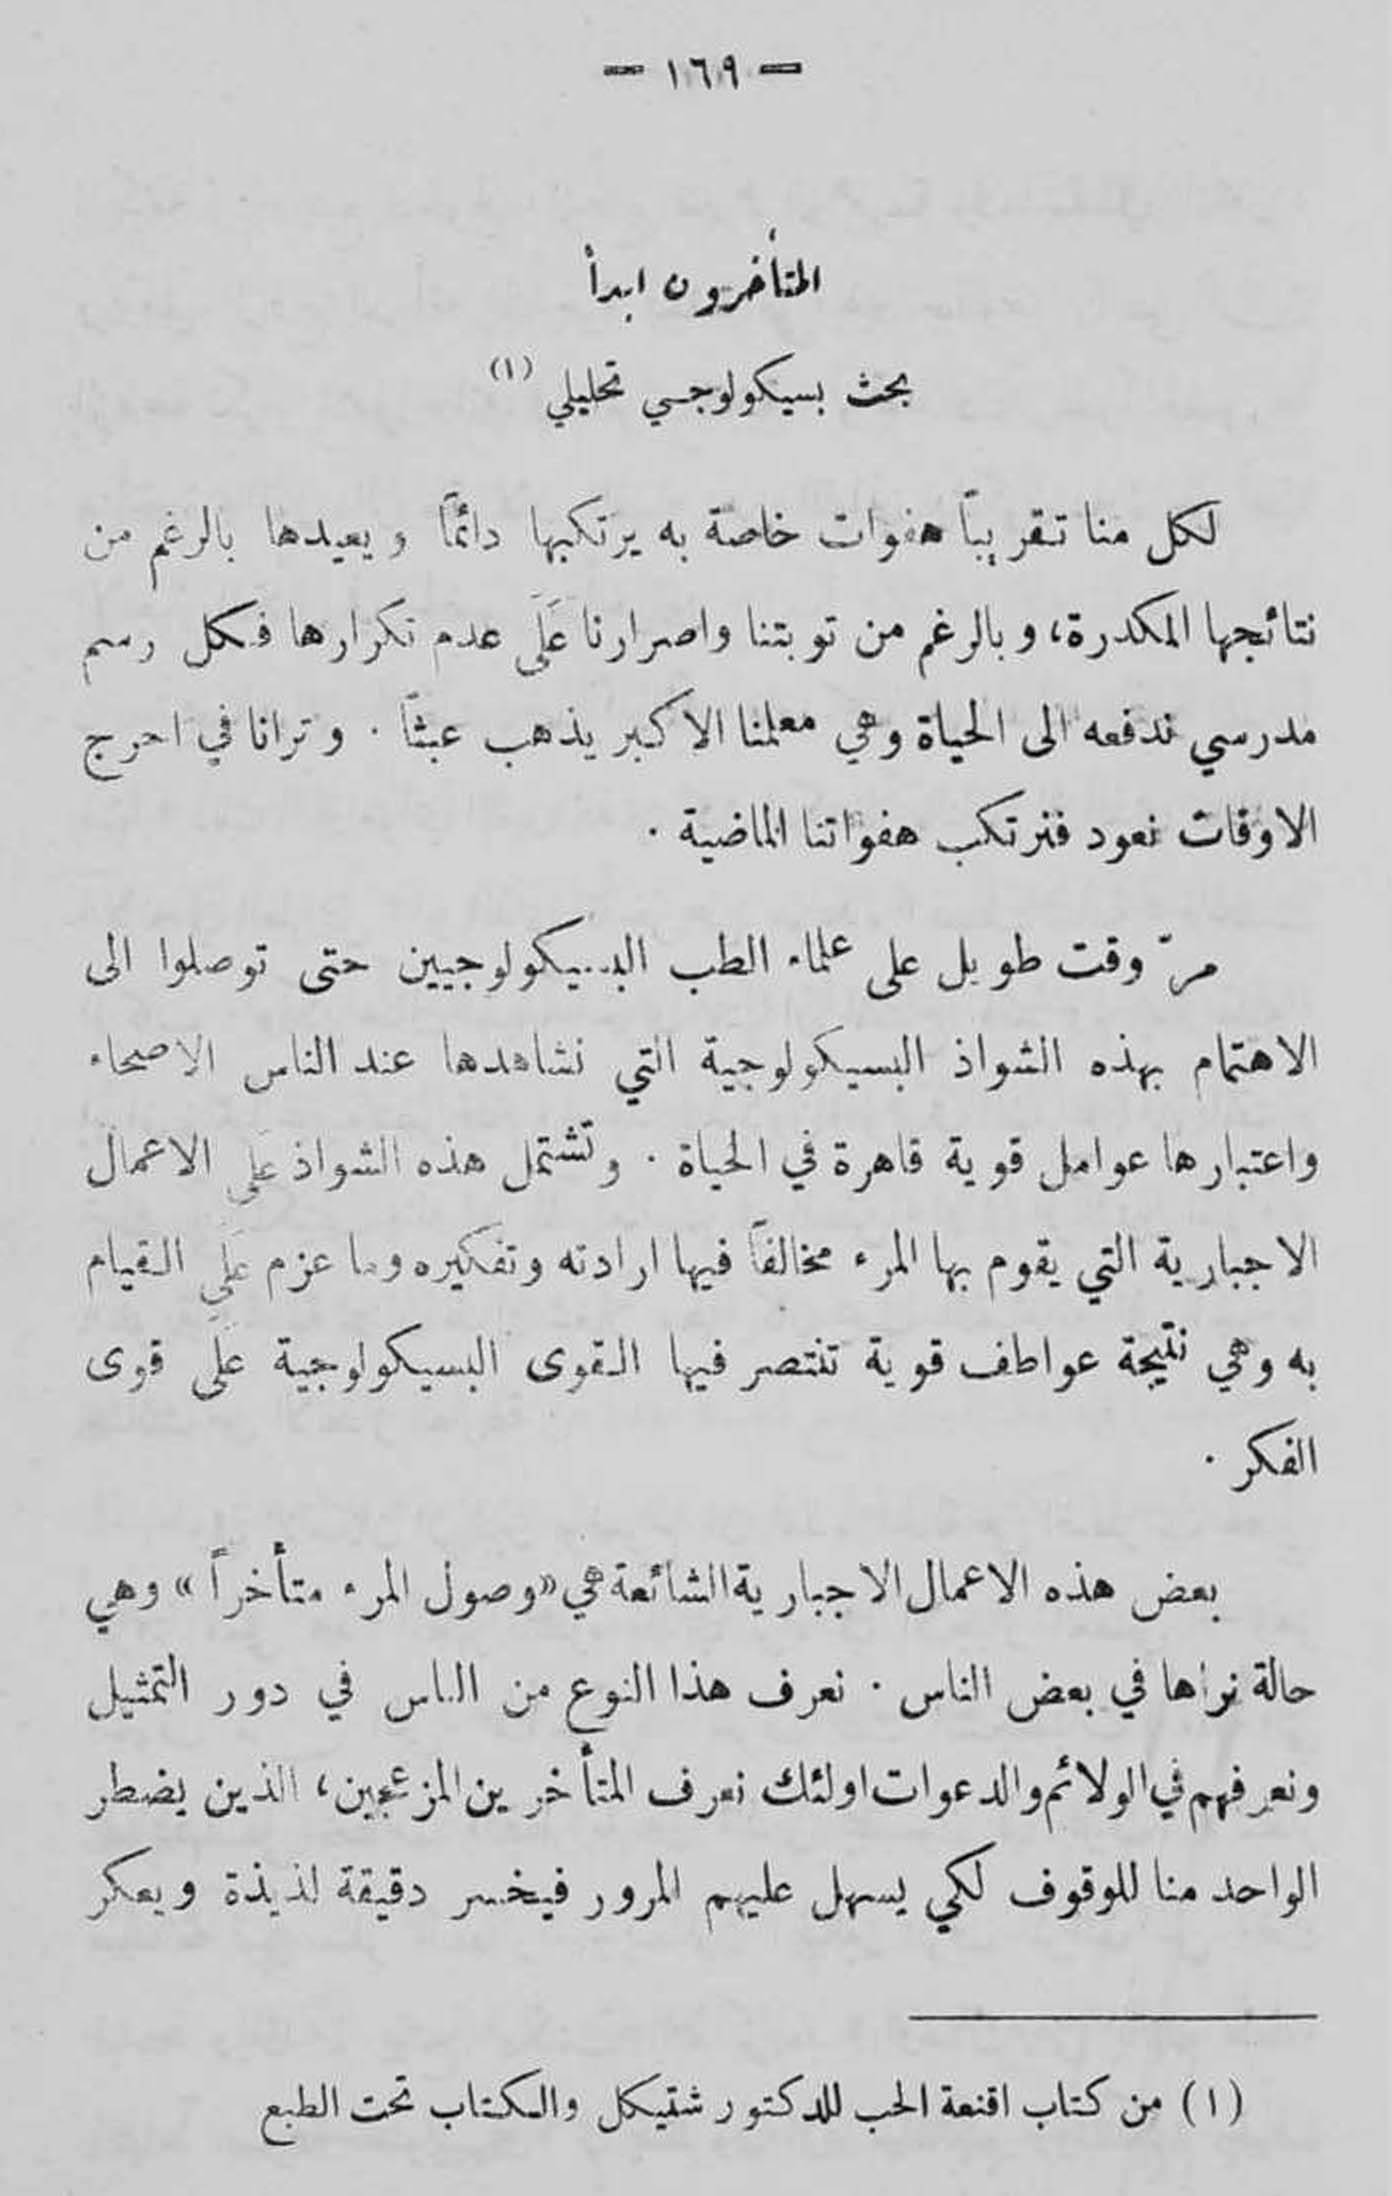 — ١٦٩ —
المتأخرون ابدأ
بحث بسيكولوجي تحليلي (١)
لكل منا تقريباً هفوات خاصة به يرتكبها دائماً ويعيدها بالرغم من
نتائجها المكدرة، وبالرغم من توبتنا واصرارنا عَلَى عدم تكرارها فكل رسم
مدرسي ندفعه الى الحياة وهي معلمنا الاكبر يذهب عبثاً . وترانا في احرج
الاوقات نعود فنرتكب هفواتنا الماضية .
مرّ وقت طويل على علماء الطب البسيكولوجيين حتى توصلوا الى
الاهتمام بهذه الشواذ البسيكولوجية التي نشاهدها عند الناس الاصحاء
واعتبارها عوامل قوية قاهرة في الحياة . وتشتمل هذه الشواذ عَلَى الاعمال
الاجبارية التي يقوم بها المرء مخالفاً فيها ارادته وتفكيره وما عزم عَلَى القيام
به وهي نتيجة عواطف قوية تنتصر فيها القوى البسيكولوجية عَلَى قوى
الفكر .
بعض هذه الاعمال الاجبارية الشائعة هي «وصول المرء متأخراً» وهي
حالة نراها في بعض الناس . نعرف هذا النوع من الناس في دور التمثيل
ونعرفهم في الولائم والدعوات اولئك نعرف المتأخرين المزعجين، الذين يضطر
الواحد منا للوقوف لكي يسهل عليهم المرور فيخسر دقيقة لذيذة ويعكر
(١) من كتاب اقنعة الحب للدكتور شتيكل والكتاب تحت الطبع